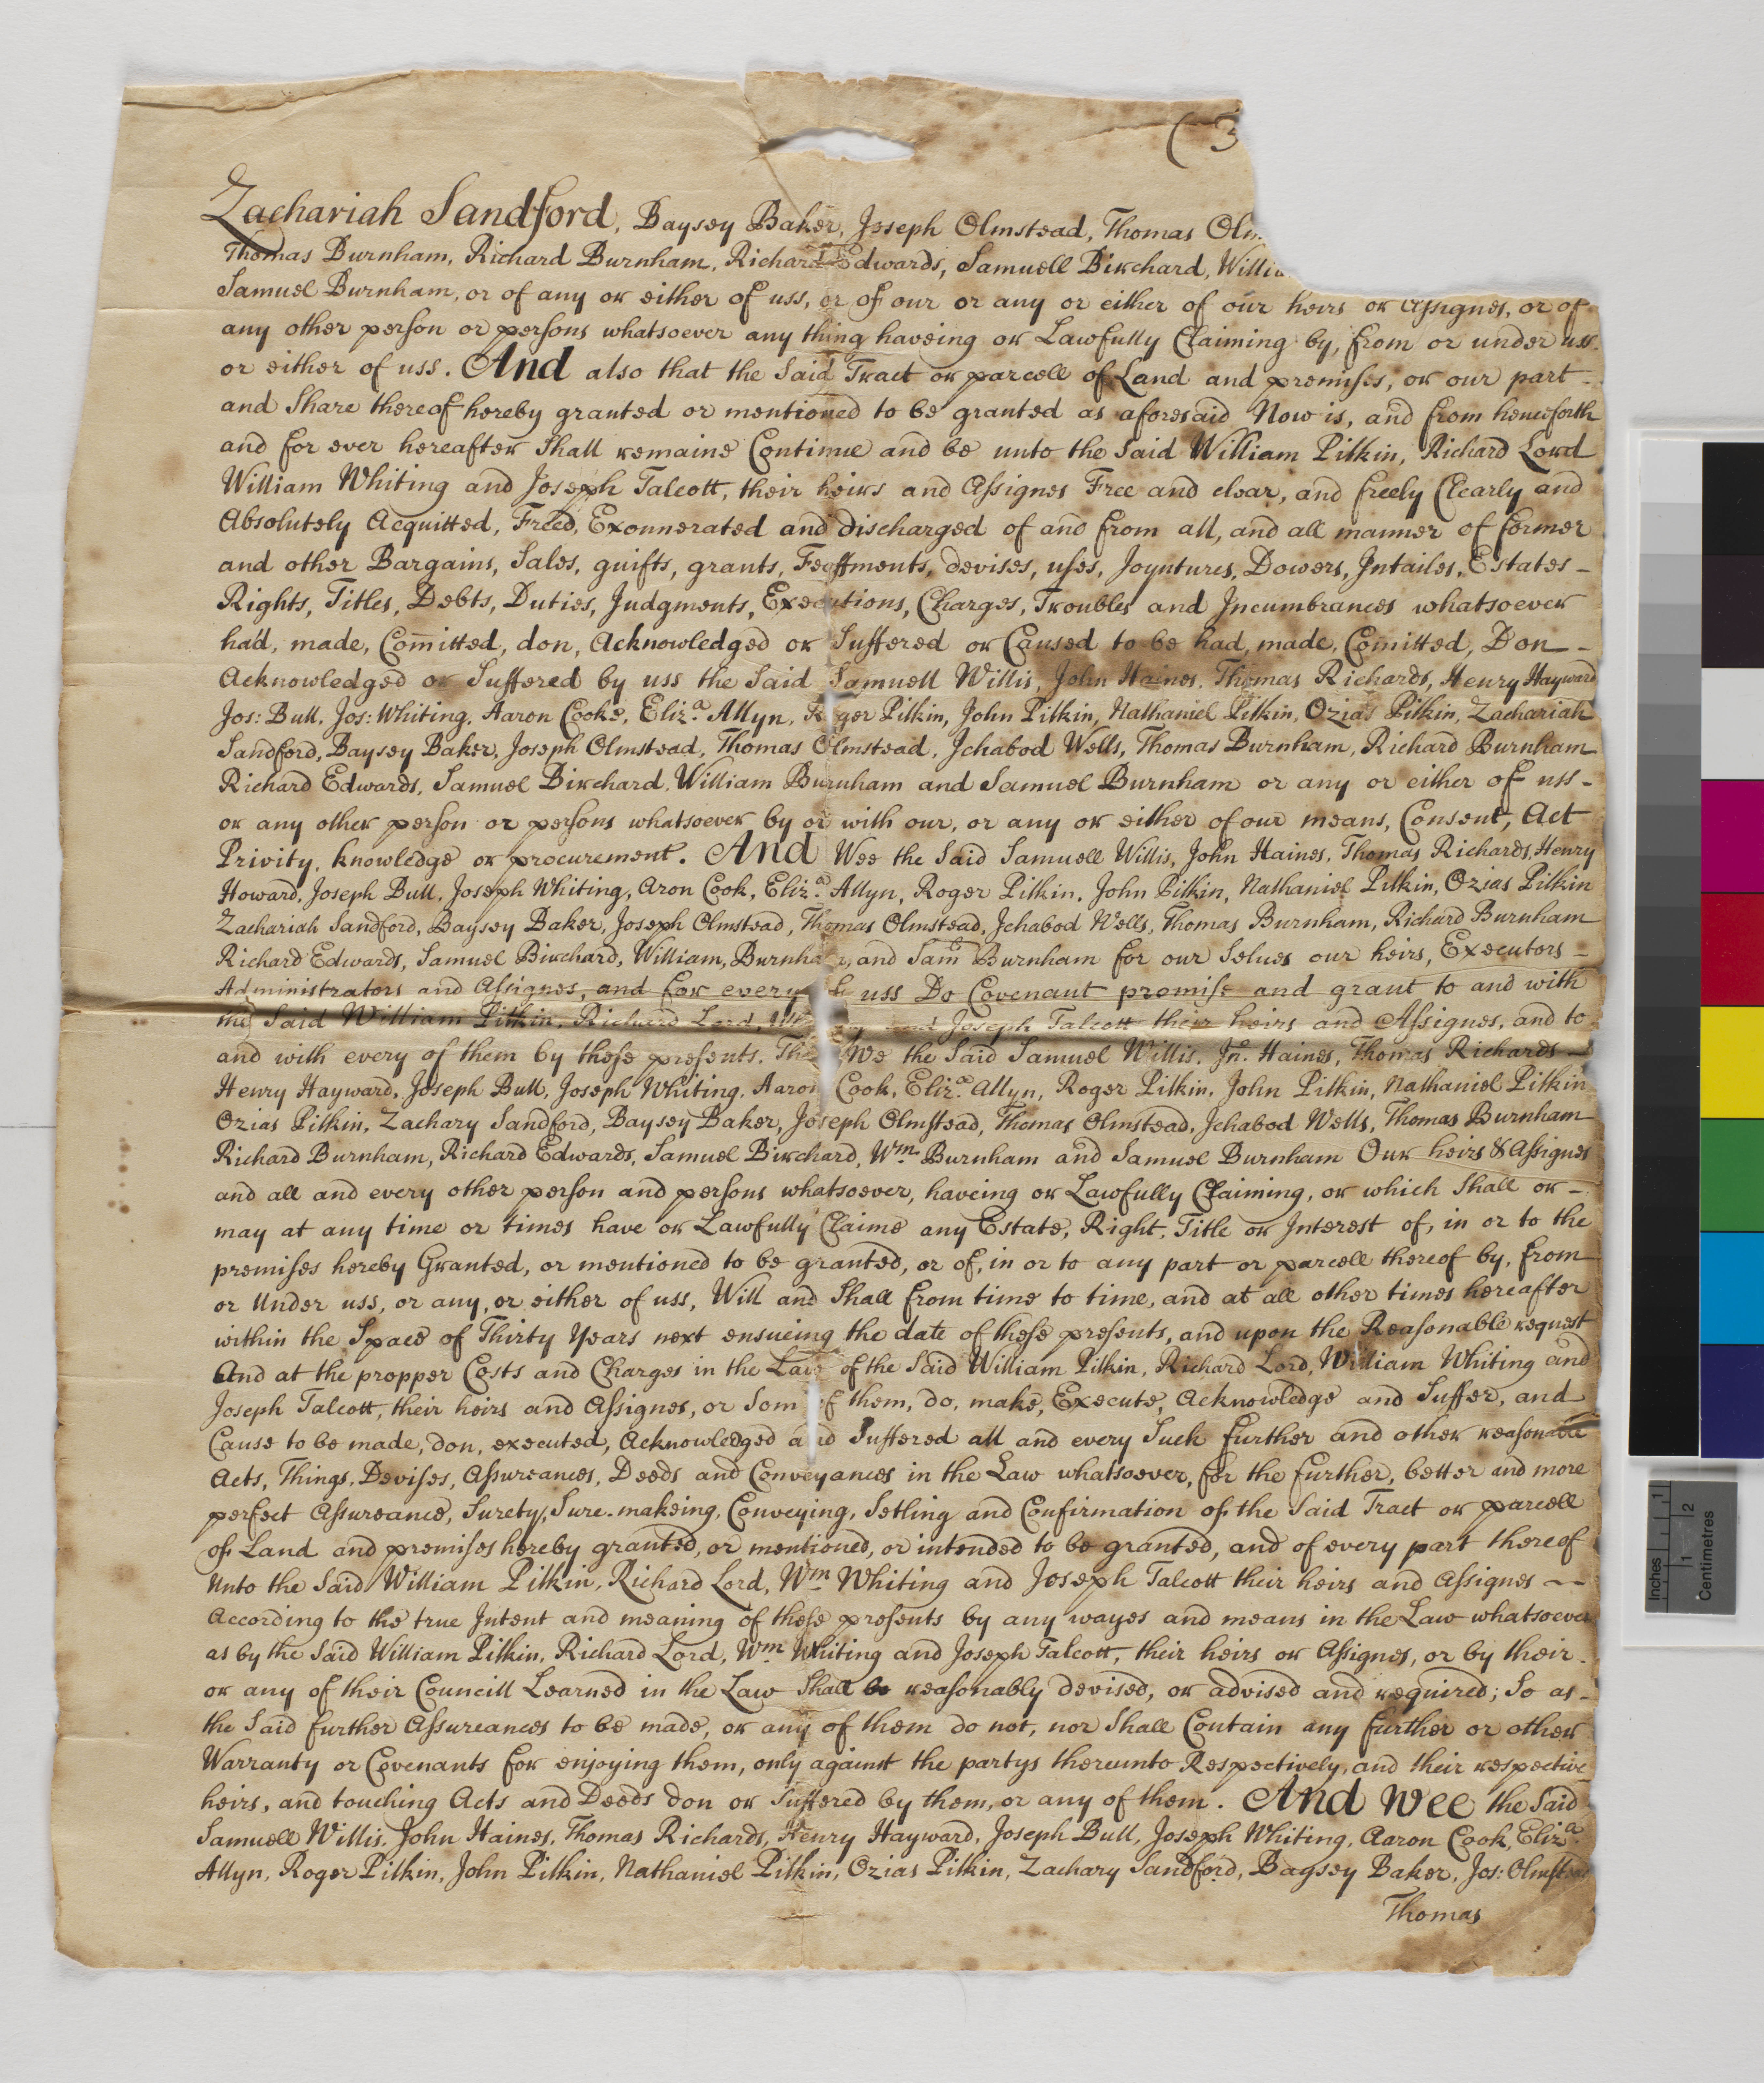 ( 3
Zachariah Sandford, Baysey Baker, Joseph Olmstead, Thomas Olm
Thomas Burnham, Richard Burnham, Richard Edwards, Samuell Birchard, Willia
Samuel Burnham, or of any or either of uss, or of our or any or either of our heirs or Assignes, or of
any other person or persons whatsoever any thing haveing or Lawfully Claiming by, from or under uss
or either of uss. And also that the Said Tract or parcell of Land and premises, or our part -
and Share thereof hereby granted or mentioned to be granted as aforesaid Now is, and from henceforth
and for ever hereafter Shall remaine Continue and be unto the Said William Pitkin, Richard Lord
William Whiting and Joseph Talcott, their heirs and Assignes Free and clear, and freely Clearly and
Absolutely Acquitted, Freed, Exonnerated and discharged of and from all, and all manner of former
and other Bargains, Sales, guifts, grants, Feoffments, devises, uses, Joyntures, Dowers, Intailes, Estates -
Rights, Titles, Debts, Duties, Judgments, Executions, Charges, Troubles and Incumbrances whatsoever
had, made, Com̄itted, don, Acknowledged or Suffered or Caused to be had, made, Com̄itted, Don -
Acknowledged or Suffered by uss the Said Samuell Willis, John Haines, Thomas Richards, Henry Hayward
Jos: Bull, Jos: Whiting, Aaron Cooke, Eliz.a Allyn, Roger Pitkin, John Pitkin, Nathaniel Pitkin, Ozias Pitkin, Zachariah
Sandford, Baysey Baker, Joseph Olmstead, Thomas Olmstead, Ichabod Wells, Thomas Burnham, Richard Burnham
Richard Edwards, Samuel Birchard, William Burnham and Samuel Burnham or any or either of uss -
or any other person or persons whatsoever by or with our, or any or either of our means, Consent, Act
Privity, knowledge or procurement. And Wee the Said Samuell Willis, John Haines, Thomas Richards, Henry
Howard, Joseph Bull, Joseph Whiting, Aron Cook, Eliz.a Allyn, Roger Pitkin, John Pitkin, Nathaniel Pitkin, Ozias Pitkin
Zachariah Sandford, Baysey Baker, Joseph Olmstead, Thomas Olmstead, Ichabod Wells, Thomas Burnham, Richard Burnham
Richard Edwards, Samuel Birchard, William, Burnham, and Sam.ll Burnham for our Selves our heirs, Executors -
Administrators and Assignes, and for every of uss Do Covenant promise and grant to and with
the Said William Pitkin, Richard Lord, and Joseph Talcott their heirs and Assignes, and to
and with every of them by these presents. We the Said Samuel Willis, Jn.o Haines, Thomas Richards -
Henry Hayward, Joseph Bull, Joseph Whiting, Aaron Cook, Eliz.a Allyn, Roger Pitkin, John Pitkin, Nathaniel Pitkin
Ozias Pitkin, Zachary Sandford, Baysey Baker, Joseph Olmstead, Thomas Olmstead, Ichabod Wells, Thomas Burnham
Richard Burnham, Richard Edwards, Samuel Birchard, Wm Burnham and Samuel Burnham Our heirs & Assignes
and all and every other person and persons whatsoever, haveing or Lawfully Claiming, or which Shall or -
may at any time or times have or Lawfully Claime any Estate, Right, Title or Interest of, in or to the
premises hereby Granted, or mentioned to be granted, or of, in or to any part or parcell thereof by, from
or Under uss, or any, or either of uss, Will and Shall from time to time, and at all other times hereafter
within the Space of Thirty Years next ensueing the date of these presents, and upon the Reasonable request
And at the propper Costs and Charges in the Law of the Said William Pitkin, Richard Lord, William Whiting and
Joseph Talcott, their heirs and Assignes, or Som of them, do, make, Execute, Acknowledge and Suffer, and
Cause to be made, don, executed, Acknowledged and Suffered all and every Such further and other reasonable
Acts, Things, Devises, Assureances, Deeds and Conveyances in the Law whatsoever, for the further, better and more
perfect Assureance, Surety, Sure-makeing, Conveying, Setling and Confirmation of the Said Tract or parcell
of Land and premises hereby granted, or mentioned, or intended to be granted, and of every part thereof
Unto the Said William Pitkin, Richard Lord, Wm Whiting and Joseph Talcott their heirs and Assignes --
According to the true Intent and meaning of these presents by any wayes and means in the Law whatsoever
as by the Said William Pitkin, Richard Lord, Wm Whiting and Joseph Talcott, their heirs or Assignes, or by their -
or any of their Councill Learned in the Law Shall be reasonably devised, or advised and required; So as -
the Said further Assureances to be made, or any of them do not, nor Shall Contain any further or other
Warranty or Covenants for enjoying them, only against the partys thereunto Respectively, and their respective
heirs, and touching Acts and Deeds don or Suffered by them, or any of them. And Wee the Said
Samuell Willis, John Haines, Thomas Richards, Henry Hayward, Joseph Bull, Joseph Whiting, Aaron Cook, Eliz.a
Allyn, Roger Pitkin, John Pitkin, Nathaniel Pitkin, Ozias Pitkin, Zachary Sandford, Baysey Baker, Jos: Olmstead
Thomas
Inches 1
1 2 Centimetres